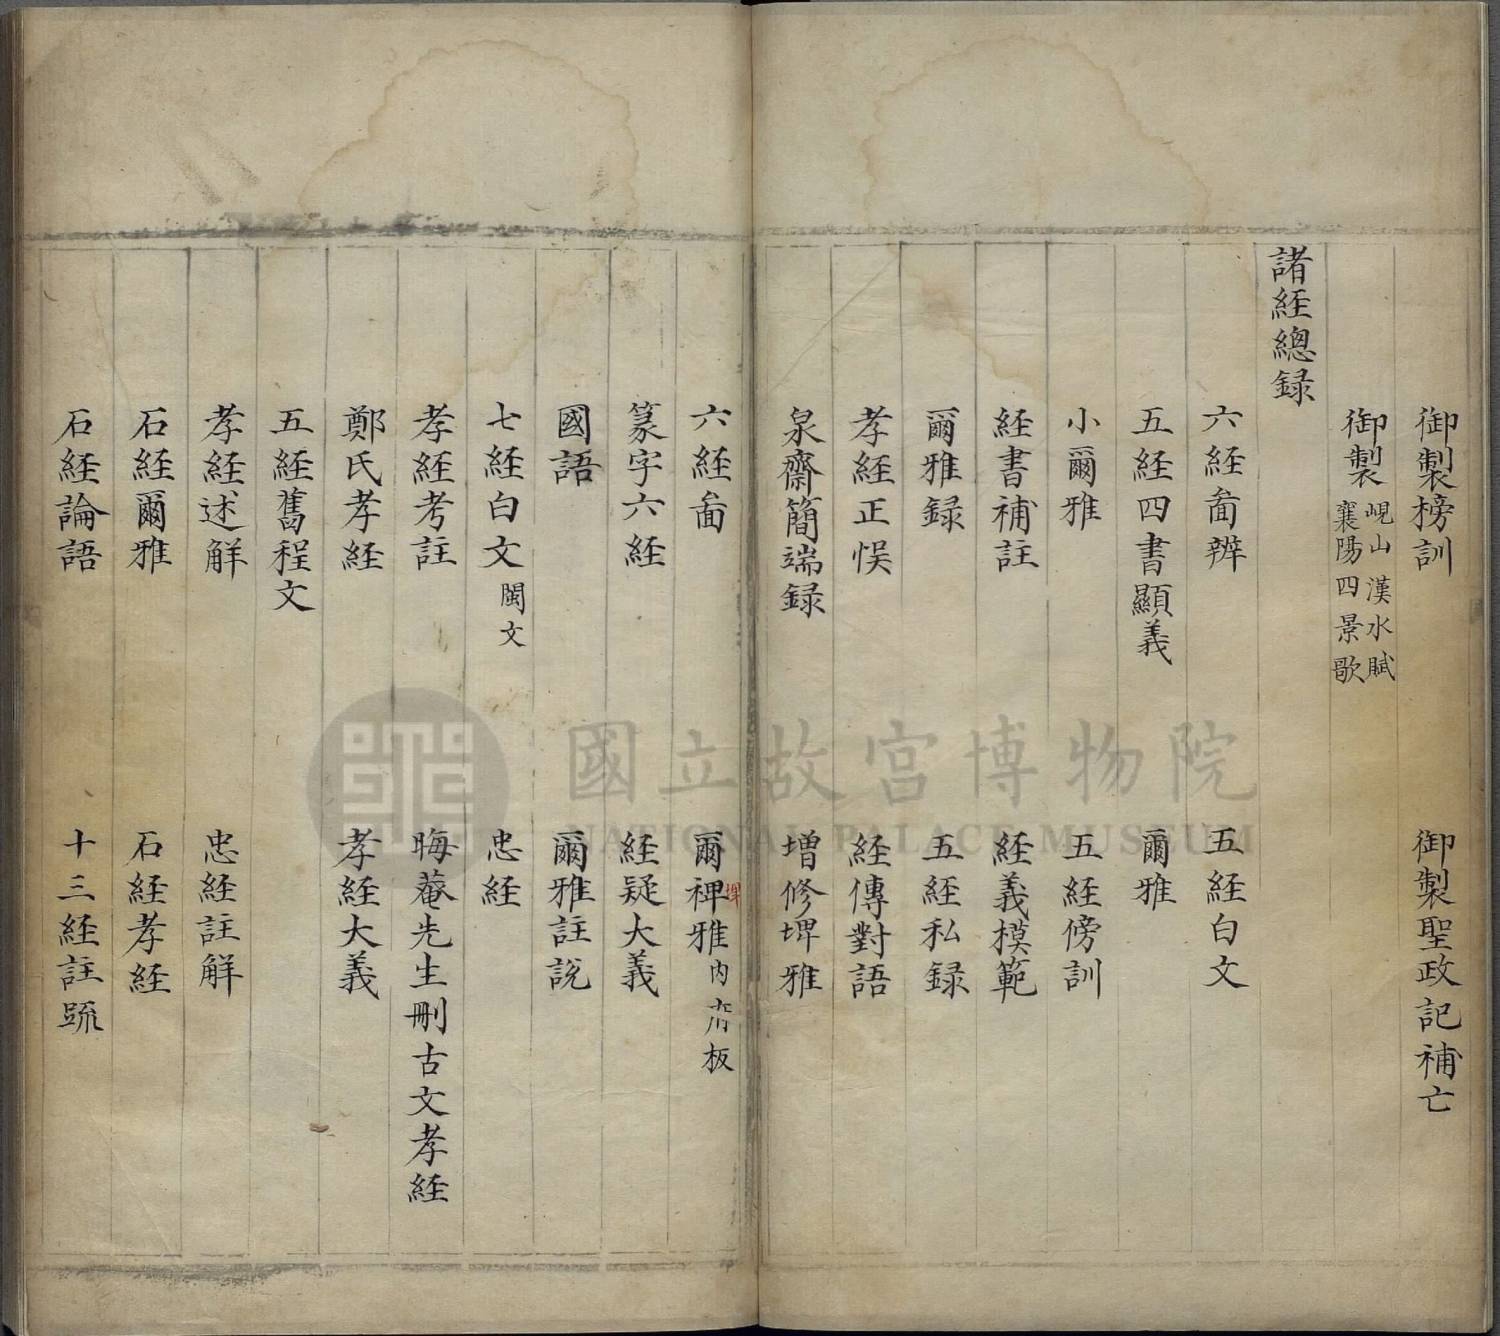 御製榜訓　御製聖政記補亡
御製峴山漢水賦襄陽四景歌
諸經總録
六經啚辨　五經白文
五經四書顯義　爾雅
小爾雅　五經傍訓
經書補註　經義模範
爾雅録　五經私録
孝經正悮　經傳對語
泉齋簡端録　增修埤雅
六經啚　爾裨雅内府板
埤
篆字六經　經疑大義
國語　爾雅註説
七經白文閩文　忠經
孝經考註　晦菴先生刪古文孝經
鄭氏孝經　孝經大義
五經舊程文
孝經述解　忠經註解
石經爾雅　石經孝經
石經論語　十三經註䟽
國立故宮博物院
NATIONAL PALACE MUSEUM